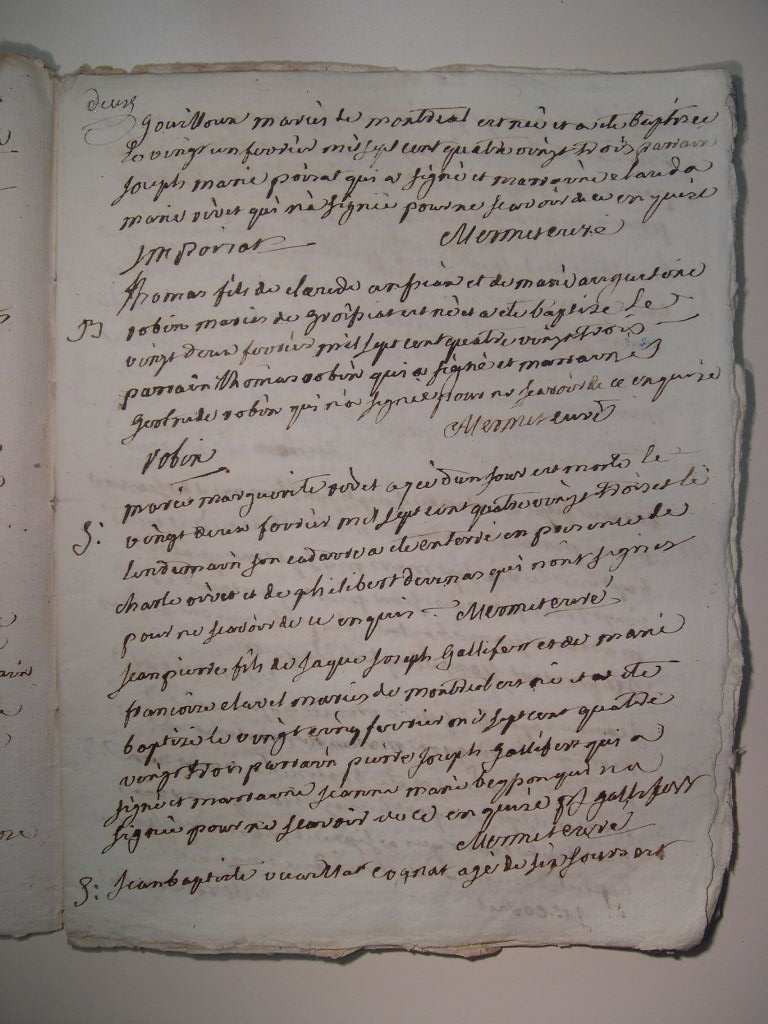 deux
gouilloux mariés de montreal est né et a ete baptisee
le vingt un fevrier mil sept cent quatre vingt trois parrain
joseph marie poisat qui a signé et marraine claudа
marie rivet qui n'a signée pour ne scavoir de ce enquise
JM Poisat Mermet curé
thomas fils de claude et de marie
robin mariés de groissiat est né et a ete baptisé le
vingt deux fevrier mil sept cent quatre vingt trois
parrain thomas robin qui a signé et marraine
robin qui n'a signée pour ne scavoir de ce enquise
Mermet curé
robin
marie marguerite rivet agée d'un jour est morte le
S: vingt deux fevrier mil sept cent quatre vingt trois et le
lendemain son cadavre a ete enterré en presence de
charle rivet et de philibert devenas qui n'ont signes
pour ne scavoir de ce enquis. Mermet curé
jean pierre fils de jaque joseph Gallifert et de marie
françoise clavel mariés de montreal est né et at ete
baptize le vingt cinq fevrier mil sept cent quatre
vingt trois parrain pierre joseph Gallifert qui a
signé et marraine jeanne marie qui n'a
signée pour ne scavoir de ce enquise
Mermet curé
S: jean baptiste cognat agé de six jours est